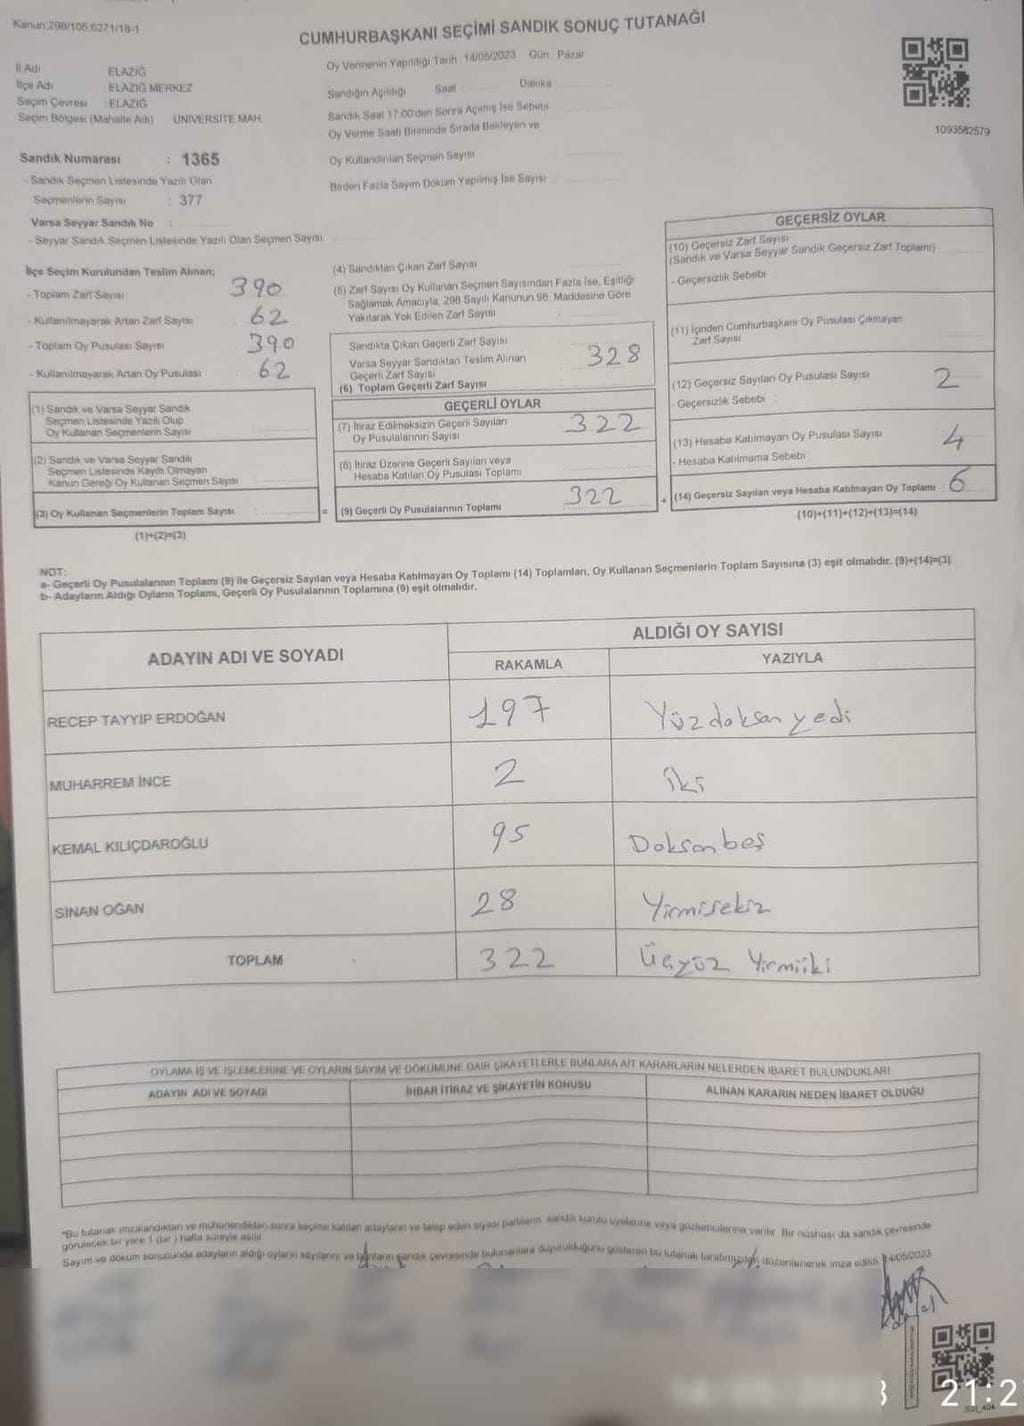 Kanun:298/105,6271/18-1
CUMHURBAŞKANI SEÇİMİ SANDIK SONUÇ TUTANAĞI
İl Adı ELAZIĞ
İlçe Adı ELAZIĞ MERKEZ
Seçim Çevresi : ELAZIĞ
Seçim Bölgesi (Mahalle Adı) ÜNİVERSİTE MAH.
Oy Vermenin Yapıldığı Tarih 14/05/2023 Gün Pazar
Sandığın Açıldığı Saat Dakika
Sandık Saat 17:00'den Sonra Açılmış İse Sebebi
Oy Verme Saati Bitiminde Sırada Bekleyen ve
Oy Kullandırılan Seçmen Sayısı
Birden Fazla Sayım Döküm Yapılmış İse Sayısı
1093582579
Sandık Numarası : 1365
- Sandık Seçmen Listesinde Yazılı Olan
Seçmenlerin Sayısı : 377
Varsa Seyyar Sandık No :
- Seyyar Sandık Seçmen Listesinde Yazılı Olan Seçmen Sayısı
İlçe Seçim Kurulundan Teslim Alınan;
- Toplam Zarf Sayısı 390
- Kullanılmayarak Artan Zarf Sayısı 62
- Toplam Oy Pusulası Sayısı 390
- Kullanılmayarak Artan Oy Pusulası 62
(1) Sandık ve Varsa Seyyar Sandık
Seçmen Listesinde Yazılı Olup
Oy Kullanan Seçmenlerin Sayısı
(2) Sandık ve Varsa Seyyar Sandık
Seçmen Listesinde Kayıtlı Olmayan
Kanun Gereği Oy Kullanan Seçmen Sayısı
(3) Oy Kullanan Seçmenlerin Toplam Sayısı =
(1)+(2)=(3)
(4) Sandıktan Çıkan Zarf Sayısı
(5) Zarf Sayısı Oy Kullanan Seçmen Sayısından Fazla İse, Eşitliği
Sağlamak Amacıyla, 298 Sayılı Kanunun 98. Maddesine Göre
Yakılarak Yok Edilen Zarf Sayısı
Sandıkta Çıkan Geçerli Zarf Sayısı
Varsa Seyyar Sandıktan Teslim Alınan
Geçerli Zarf Sayısı
(6) Toplam Geçerli Zarf Sayısı 328
GEÇERLİ OYLAR
(7) İtiraz Edilmeksizin Geçerli Sayılan
Oy Pusulalarının Sayısı 322
(8) İtiraz Üzerine Geçerli Sayılan veya
Hesaba Katılan Oy Pusulası Toplamı
(9) Geçerli Oy Pusulalarının Toplamı 322 +
GEÇERSİZ OYLAR
(10) Geçersiz Zarf Sayısı
(Sandık ve Varsa Seyyar Sandık Geçersiz Zarf Toplamı)
- Geçersizlik Sebebi
(11) İçinden Cumhurbaşkanı Oy Pusulası Çıkmayan
Zarf Sayısı
(12) Geçersiz Sayılan Oy Pusulası Sayısı 2
- Geçersizlik Sebebi
(13) Hesaba Katılmayan Oy Pusulası Sayısı 4
- Hesaba Katılmama Sebebi
(14) Geçersiz Sayılan veya Hesaba Katılmayan Oy Toplamı 6
(10)+(11)+(12)+(13)=(14)
NOT:
a- Geçerli Oy Pusulalarının Toplamı (9) ile Geçersiz Sayılan veya Hesaba Katılmayan Oy Toplamı (14) Toplamları, Oy Kullanan Seçmenlerin Toplam Sayısına (3) eşit olmalıdır. (9)+(14)=(3)
b- Adayların Aldığı Oyların Toplamı, Geçerli Oy Pusulalarının Toplamına (9) eşit olmalıdır.
ADAYIN ADI VE SOYADI
ALDIĞI OY SAYISI
RAKAMLA YAZIYLA
RECEP TAYYİP ERDOĞAN 197 Yüzdoksan yedi
MUHARREM İNCE 2 İki
KEMAL KILIÇDAROĞLU 95 Doksanbeş
SİNAN OĞAN 28 Yirmisekiz
TOPLAM 322 Üçyüz Yirmiiki
OYLAMA İŞ VE İŞLEMLERİNE VE OYLARIN SAYIM VE DÖKÜMÜNE DAİR ŞİKAYETLERLE BUNLARA AİT KARARLARIN NELERDEN İBARET BULUNDUKLARI
ADAYIN ADI VE SOYADI İHBAR İTİRAZ VE ŞİKAYETİN KONUSU ALINAN KARARIN NEDEN İBARET OLDUĞU
*Bu tutanak imzalandıktan ve mühürlendikten sonra seçime katılan adayların ve talep eden siyasi partilerin sandık kurulu üyelerine veya gözlemcilerine verilir. Bir nüshası da sandık çevresinde
görülecek bir yere 1 (bir) hafta süreyle asılır.
Sayım ve döküm sonucunda adayların aldığı oyların sayılarını ve bunların sandık çevresinde bulunanlara duyurulduğunu gösteren bu tutanak tarafımızdan düzenlenerek imza edildi. 14/05/2023
21:2